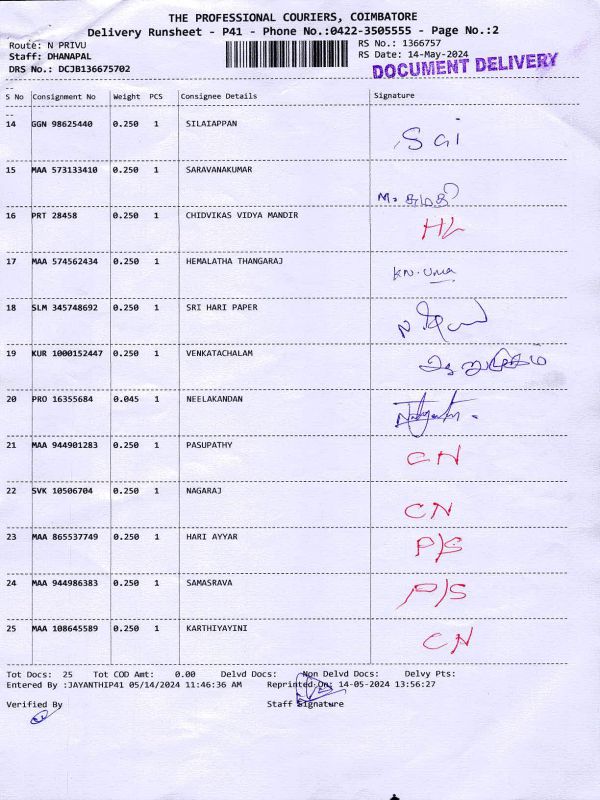 THE PROFESSIONAL COURIERS, COIMBATORE
Delivery Runsheet - P41 - Phone No.:0422-3505555 - Page No.:2
Route: N PRIVU RS No.: 1366757
Staff: DHANAPAL RS Date: 14-May-2024
DRS No.: DCJB136675702 DOCUMENT DELIVERY
S No Consignment No Weight PCS Consignee Details Signature
14 GGN 98625440 0.250 1 SILAIAPPAN Sai
15 MAA 573133410 0.250 1 SARAVANAKUMAR M. சுமதி
16 PRT 28458 0.250 1 CHIDVIKAS VIDYA MANDIR HL
17 MAA 574562434 0.250 1 HEMALATHA THANGARAJ KN. Uma
18 SLM 345748692 0.250 1 SRI HARI PAPER
19 KUR 1000152447 0.250 1 VENKATACHALAM
20 PRO 16355684 0.045 1 NEELAKANDAN
21 MAA 944901283 0.250 1 PASUPATHY CN
22 SVK 10506704 0.250 1 NAGARAJ CN
23 MAA 865537749 0.250 1 HARI AYYAR P/S
24 MAA 944986383 0.250 1 SAMASRAVA P/S
25 MAA 108645589 0.250 1 KARTHIYAYINI CN
Tot Docs: 25 Tot COD Amt: 0.00 Delvd Docs: Non Delvd Docs: Delvy Pts:
Entered By :JAYANTHIP41 05/14/2024 11:46:36 AM Reprinted On: 14-05-2024 13:56:27
Verified By Staff Signature